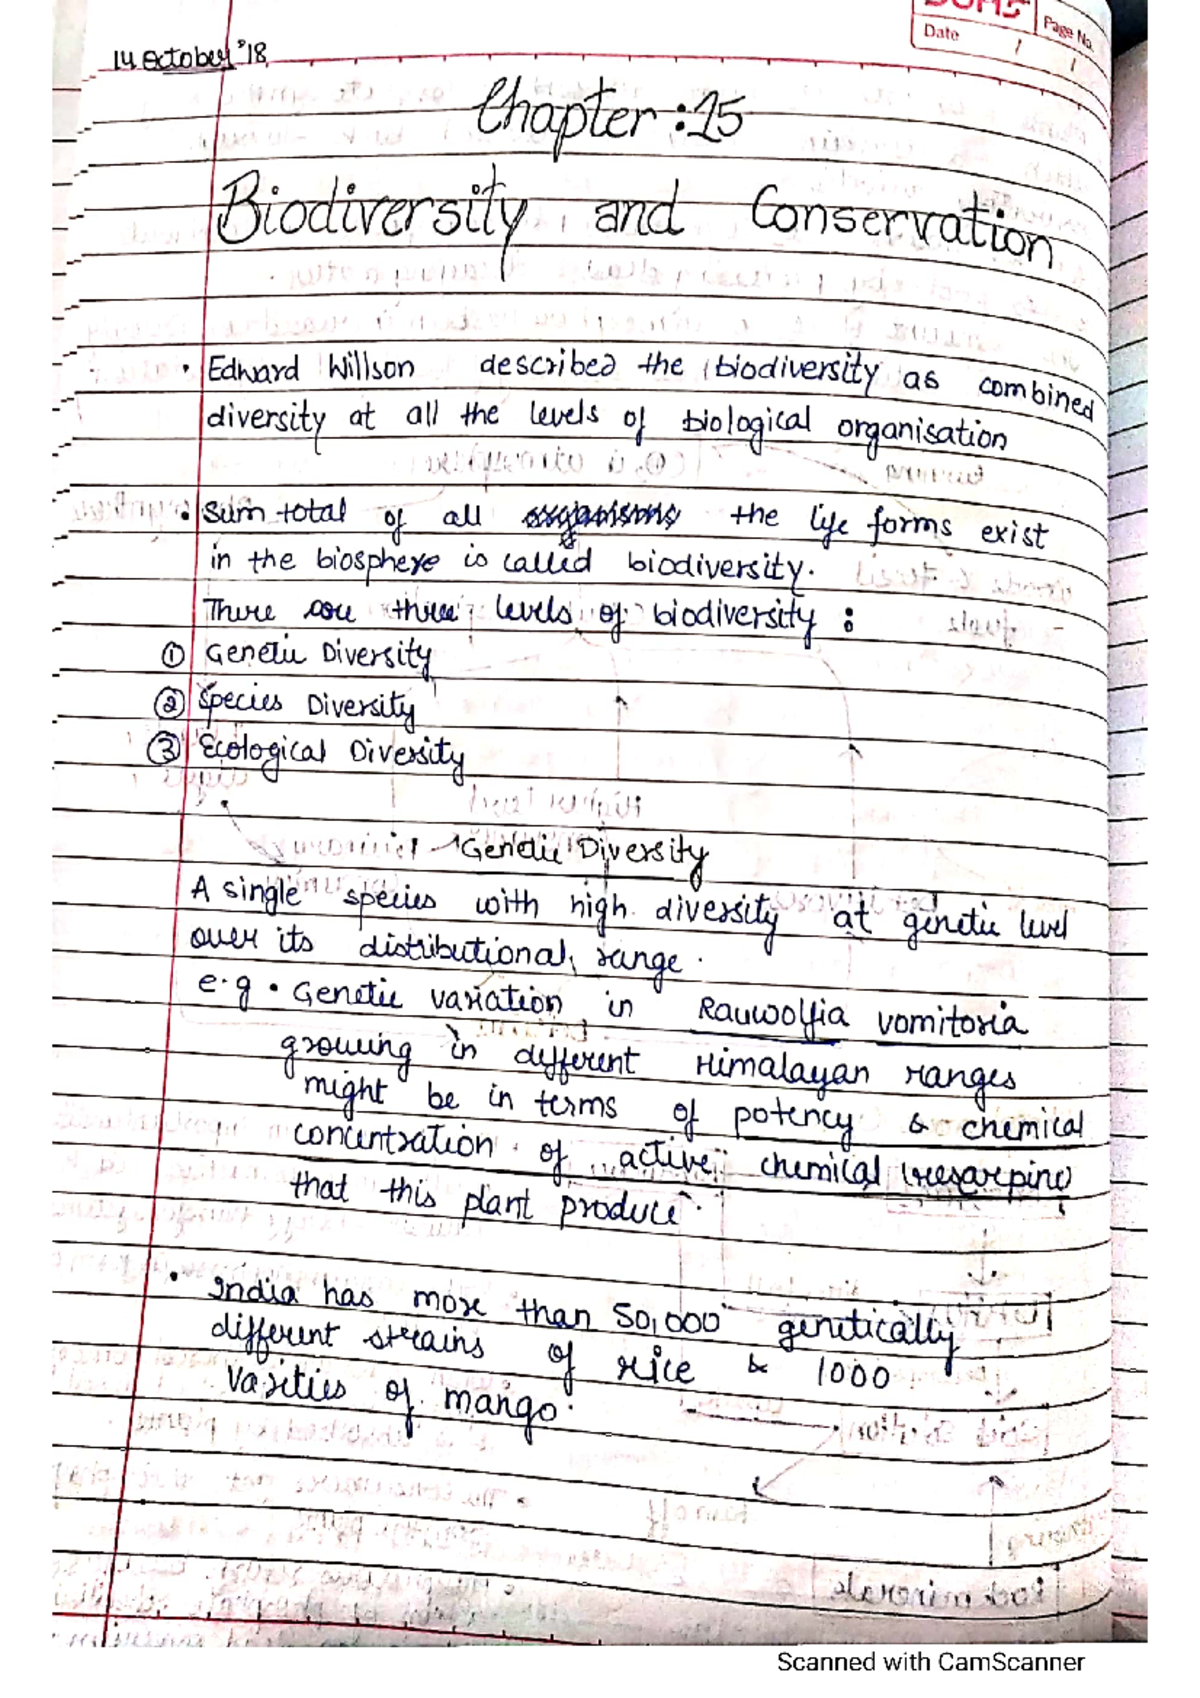 DOMS
Page No.
Date / /
14 October '18
Chapter :15
Biodiversity and Conservation
• Edward Willson described the biodiversity as combined
diversity at all the levels of biological organisation
• Sum total of all organisms the life forms exist
in the biosphere is called biodiversity.
There are three levels of biodiversity :
① Genetic Diversity
② Species Diversity
③ Ecological Diversity
Genetic Diversity
A single species with high diversity at genetic level
over its distributional range.
e.g • Genetic variation in Rauwolfia vomitoria
growing in different Himalayan ranges
might be in terms of potency & chemical
concentration of active chemical (resarpine)
that this plant produce.
• India has more than 50,000 genetically
different strains of rice & 1000
varities of mango.
Scanned with CamScanner